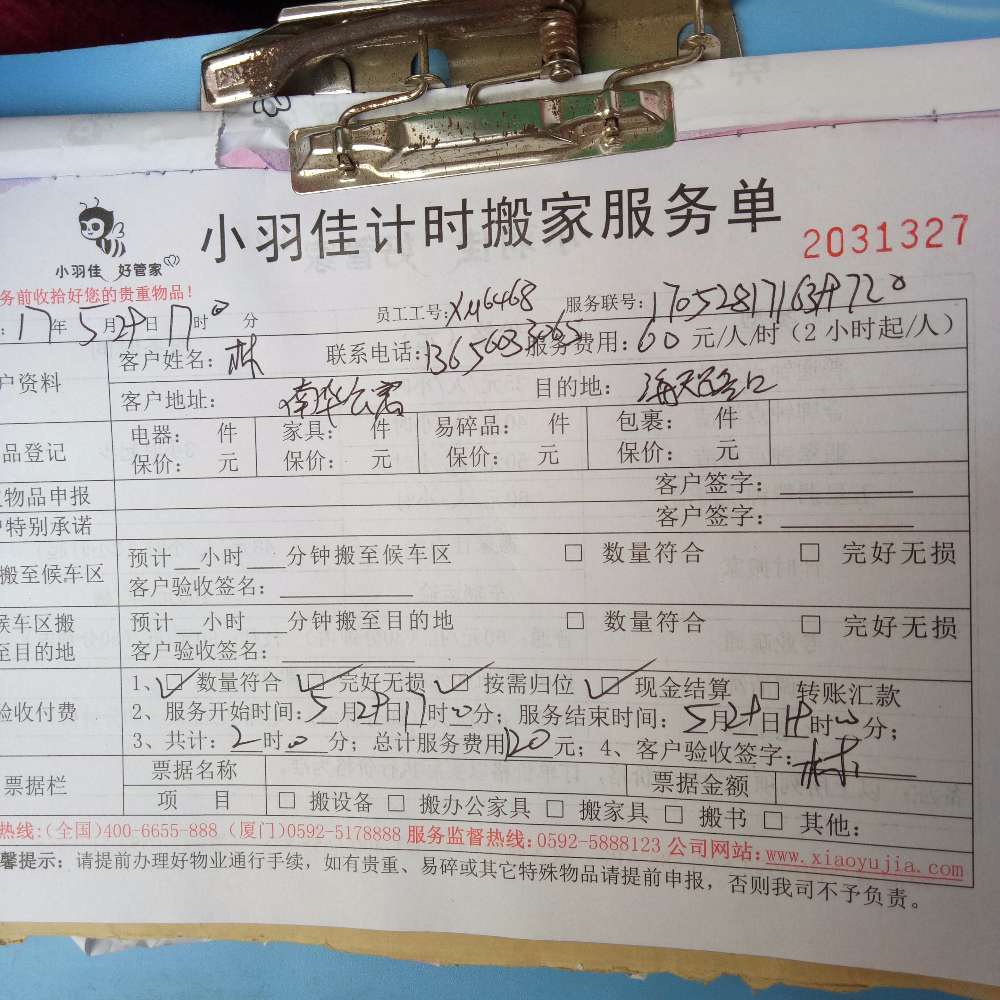 小羽佳 好管家
小羽佳计时搬家服务单
2031327
务前收拾好您的贵重物品！
：17年5月29日17时0分 员工工号：XM6468 服务联号：
户资料 客户姓名：林 联系电话：13656033065 服务费用：60元/人/时（2小时起/人）
客户地址：南华公寓 目的地：海天路口
品登记 电器： 件 家具： 件 易碎品： 件 包裹： 件
保价： 元 保价： 元 保价： 元 保价： 元
物品申报 客户签字：
特别承诺 客户签字：
搬至候车区 预计__小时___分钟搬至候车区 □ 数量符合 □ 完好无损
客户验收签名：
候车区搬至目的地 预计__小时___分钟搬至目的地 □ 数量符合 □ 完好无损
客户验收签名：
验收付费 1、☑ 数量符合 ☑ 完好无损 ☑ 按需归位 ☑ 现金结算 □ 转账汇款
2、服务开始时间：5月29日17时0分；服务结束时间：5月29日19时0分；
3、共计：2时0分；总计服务费用120元；4、客户验收签字：林
票据栏 票据名称 票据金额
项 目 □ 搬设备 □ 搬办公家具 □ 搬家具 □ 搬书 □ 其他：
热线：(全国)400-6655-888 (厦门)0592-5178888 服务监督热线：0592-5888123 公司网站：www.xiaoyujia.com
馨提示：请提前办理好物业通行手续，如有贵重、易碎或其它特殊物品请提前申报，否则我司不予负责。